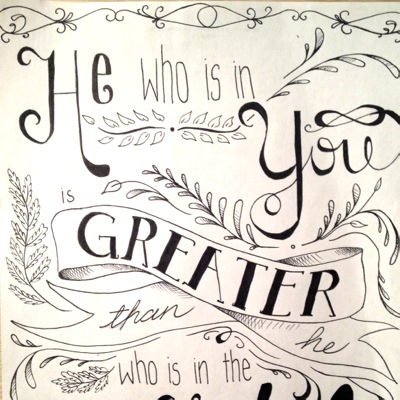 He who is in
You
is
GREATER
than he
who is in the